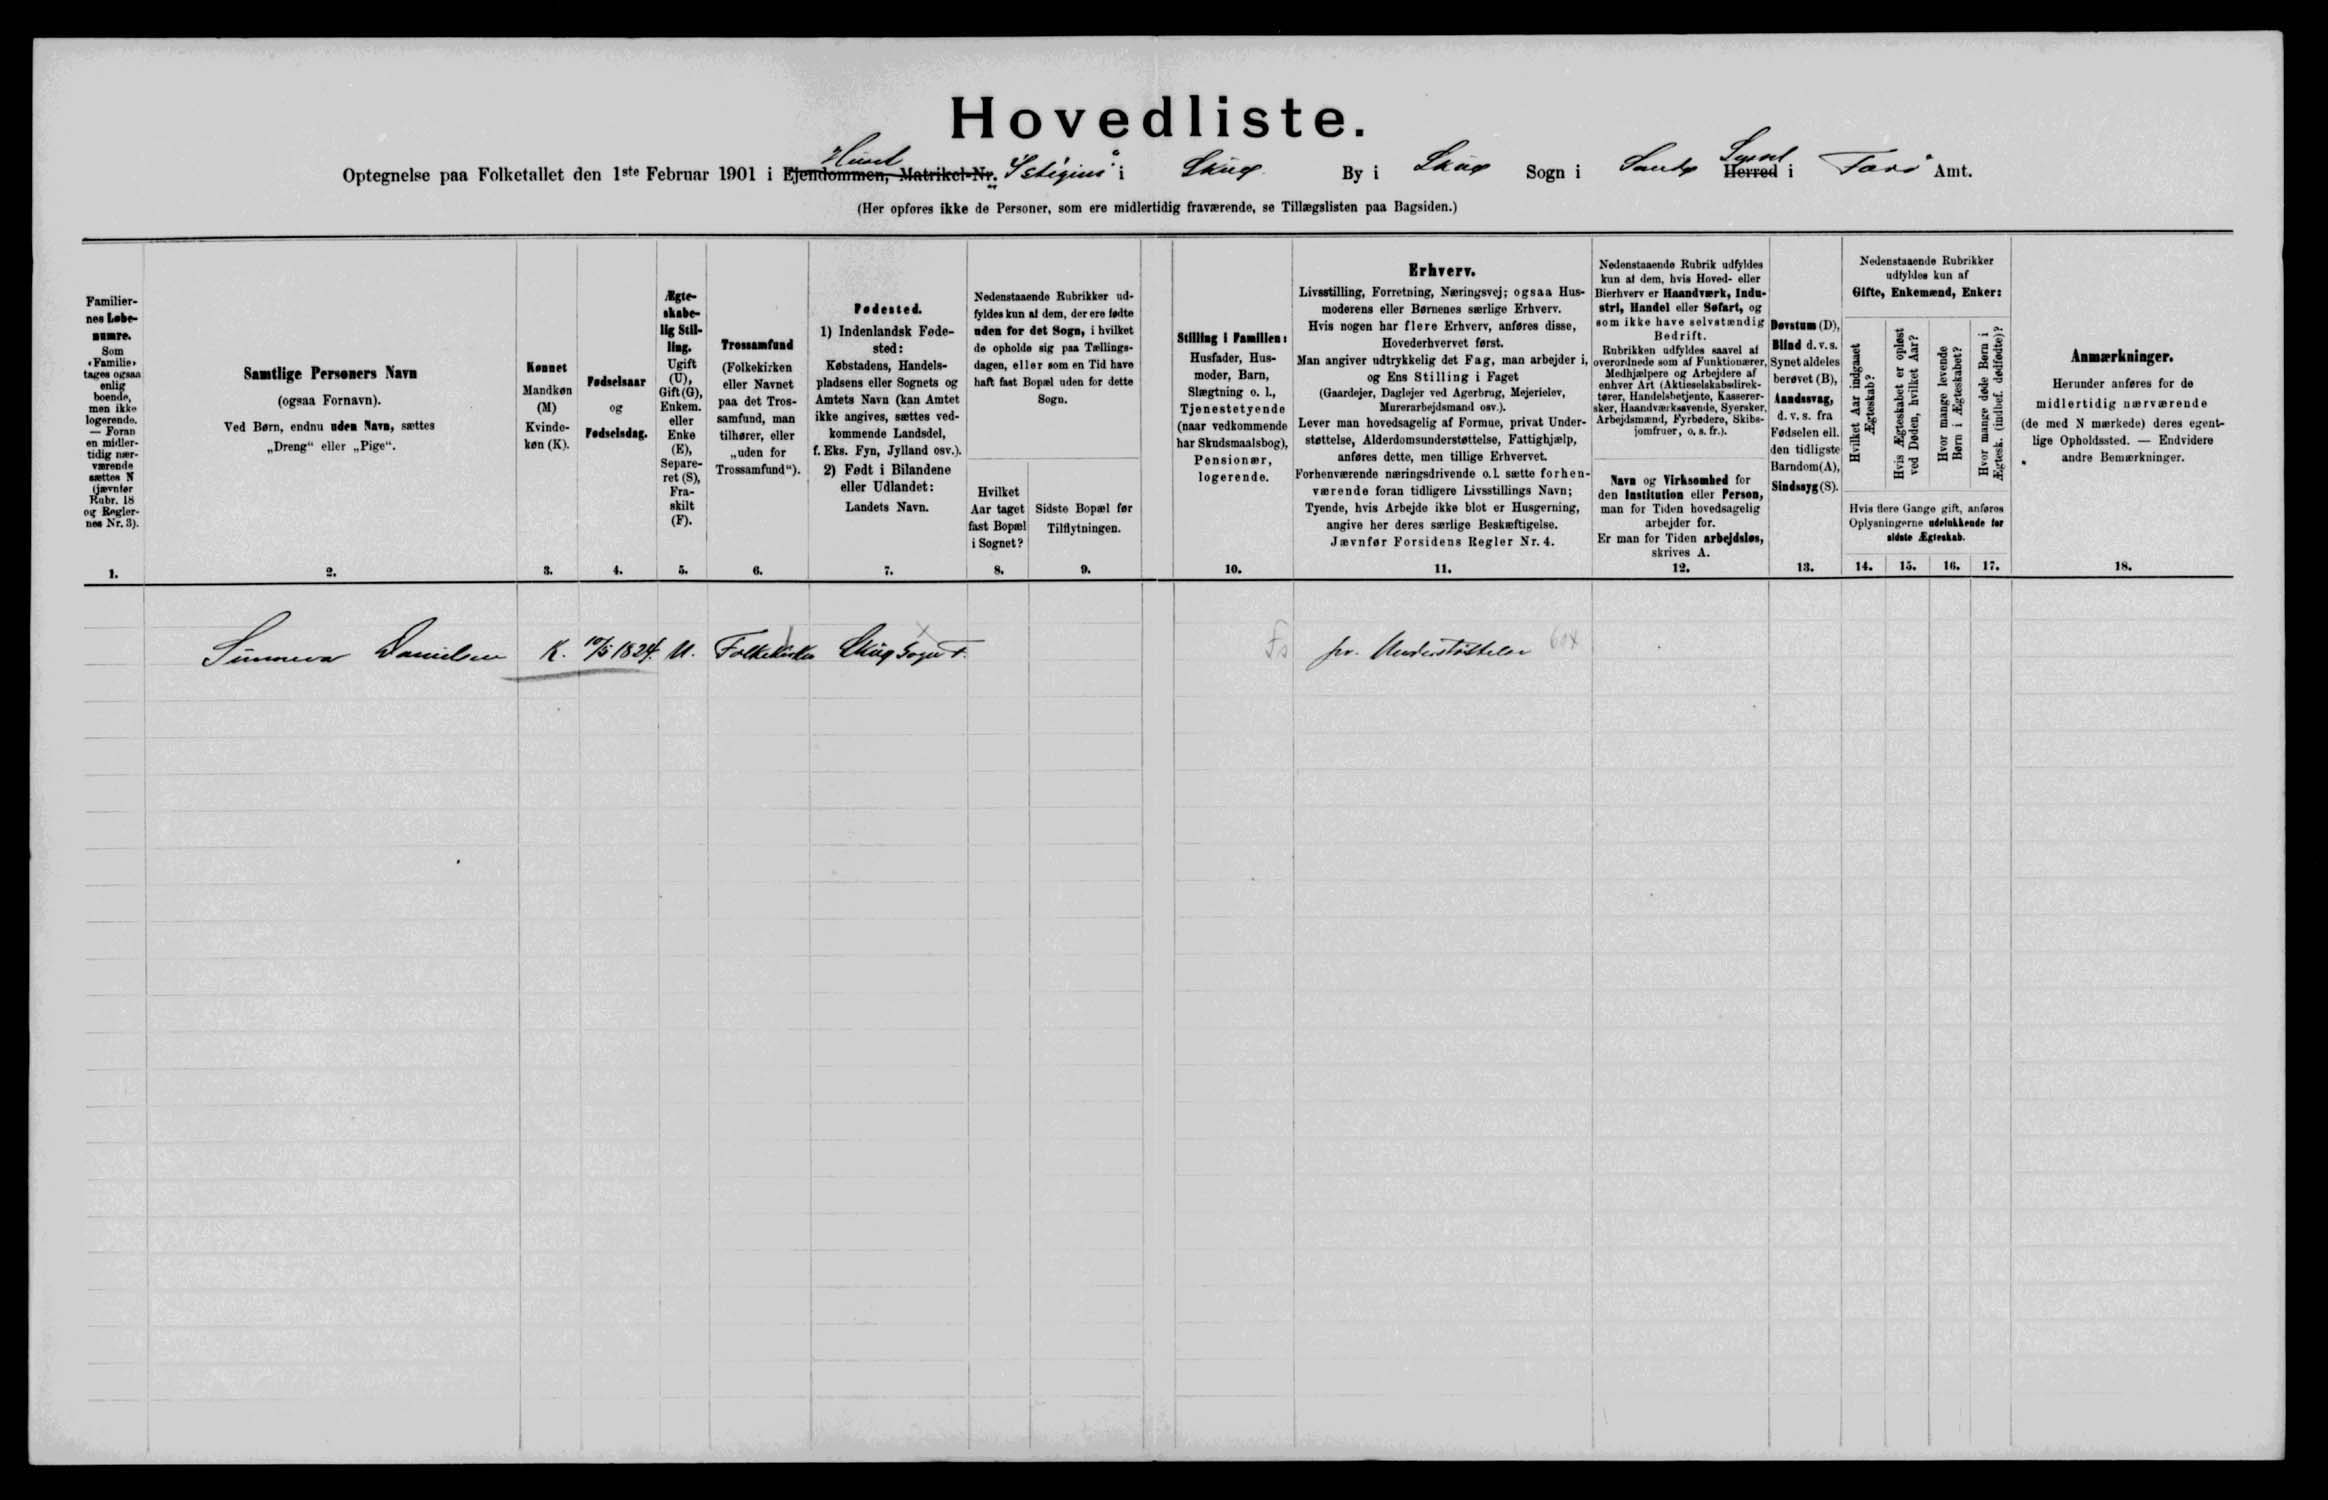 Hovedliste.
Huset
Syssel
Optegnelse paa Folketallet den 1ste Februar 1901 i Ejendommen, Matrikel-Nr. i By i Sogn i Herred i Færø Amt.
(Her opføres ikke de Personer, som ere midlertidig fraværende, se Tillægslisten paa Bagsiden.)
Familier-
nes Løbe-
numre.
Som
«Familie»
tages ogsaa
enlig
boende,
men ikke
logerende.
— Foran
en midler-
tidig nær-
værende
sættes N
(jævnfør
Rubr. 18
og Regler-
nes Nr. 3).
1.
Samtlige Personers Navn
(ogsaa Fornavn).
Ved Børn, endnu uden Navn, sættes
„Dreng“ eller „Pige“.
2.
Kønnet
Mandkøn
(M)
Kvinde-
køn (K).
3.
Fødselsaar
og
Fødselsdag.
4.
Ægte-
skabe-
lig Stil-
ling.
Ugift
(U),
Gift (G),
Enkem.
eller
Enke
(E),
Separe-
ret (S),
Fra-
skilt
(F).
5.
Trossamfund
(Folkekirken
eller Navnet
paa det Tros-
samfund, man
tilhører, eller
„uden for
Trossamfund“).
6.
Fødested.
1) Indenlandsk Føde-
sted:
Købstadens, Handels-
pladsens eller Sognets og
Amtets Navn (kan Amtet
ikke angives, sættes ved-
kommende Landsdel,
f. Eks. Fyn, Jylland osv.).
2) Født i Bilandene
eller Udlandet:
Landets Navn.
7.
Nedenstaaende Rubrikker ud-
fyldes kun af dem, der ere fødte
uden for det Sogn, i hvilket
de opholde sig paa Tællings-
dagen, eller som en Tid have
haft fast Bopæl uden for dette
Sogn.
Hvilket
Aar taget
fast Bopæl
i Sognet?
8.
Sidste Bopæl før
Tilflytningen.
9.
Stilling i Familien:
Husfader, Hus-
moder, Barn,
Slægtning o. l.,
Tjenestetyende
(naar vedkommende
har Skudsmaalsbog),
Pensionær,
logerende.
10.
Erhverv.
Livsstilling, Forretning, Næringsvej; ogsaa Hus-
moderens eller Børnenes særlige Erhverv.
Hvis nogen har flere Erhverv, anføres disse,
Hovederhvervet først.
Man angiver udtrykkelig det Fag, man arbejder i,
og Ens Stilling i Faget
(Gaardejer, Daglejer ved Agerbrug, Mejerielev,
Murerarbejdsmand osv.).
Lever man hovedsagelig af Formue, privat Under-
støttelse, Alderdomsunderstøttelse, Fattighjælp,
anføres dette, men tillige Erhvervet.
Forhenværende næringsdrivende o. l. sætte forhen-
værende foran tidligere Livsstillings Navn;
Tyende, hvis Arbejde ikke blot er Husgerning,
angive her deres særlige Beskæftigelse.
Jævnfør Forsidens Regler Nr. 4.
11.
Nedenstaaende Rubrik udfyldes
kun af dem, hvis Hoved- eller
Bierhverv er Haandværk, Indu-
stri, Handel eller Søfart, og
som ikke have selvstændig
Bedrift.
Rubrikken udfyldes saavel af
overordnede som af Funktionærer,
Medhjælpere og Arbejdere af
enhver Art (Aktieselskabsdirek-
tører, Handelsbetjente, Kasserer-
sker, Haandværkssvende, Syersker,
Arbejdsmænd, Fyrbødere, Skibs-
jomfruer, o. s. fr.).
Navn og Virksomhed for
den Institution eller Person,
man for Tiden hovedsagelig
arbejder for.
Er man for Tiden arbejdsløs,
skrives A.
12.
Døvstum (D),
Blind d. v. s.
Synet aldeles
berøvet (B),
Aandssvag,
d. v. s. fra
Fødselen ell.
den tidligste
Barndom (A),
Sindssyg (S).
13.
Nedenstaaende Rubrikker
udfyldes kun af
Gifte, Enkemænd, Enker:
Hvilket Aar indgaaet
Ægteskab?
Hvis Ægteskabet er opløst
ved Døden, hvilket Aar?
Hvor mange levende
Børn i Ægteskabet?
Hvor mange døde Børn i
Ægtesk. (indbef. dødfødte)?
Hvis flere Gange gift, anføres
Oplysningerne udelukkende for
sidste Ægteskab.
14. 15. 16. 17.
Anmærkninger.
Herunder anføres for de
midlertidig nærværende
(de med N mærkede) deres egent-
lige Opholdssted. — Endvidere
andre Bemærkninger.
18.
Sunneva Danielsen K. 10/5 1824. U. Folkekirken Sogn F. Fs pr. Understøttelse